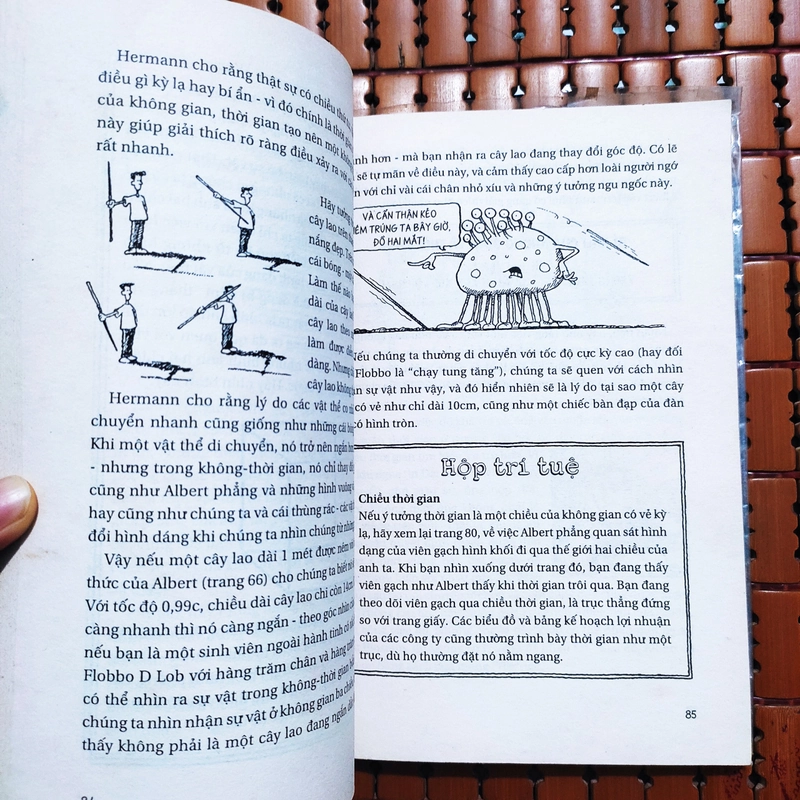 Hermann cho rằng thật sự có chiều thứ
điều gì kỳ lạ hay bí ẩn - vì đó chính là thời
của không gian, thời gian tạo nên một
này giúp giải thích rõ ràng điều xảy ra với
rất nhanh.
Hãy tưởng
cây lao trên
nắng đẹp.
cái bóng -
Làm thế nào
dài của cây
cây lao theo
làm được
dàng. Nhưng
cây lao không
Hermann cho rằng lý do các vật thể co
chuyển nhanh cũng giống như những cái
Khi một vật thể di chuyển, nó trở nên ngắn hơn
- nhưng trong không-thời gian, nó chỉ thay
cũng như Albert phẳng và những hình vuông
hay cũng như chúng ta và cái thùng rác - các
đổi hình dáng khi chúng ta nhìn chúng từ những
Vậy nếu một cây lao dài 1 mét được ném
thức của Albert (trang 66) cho chúng ta biết
Với tốc độ 0,99c, chiều dài cây lao chỉ còn 14cm
càng nhanh thì nó càng ngắn - theo góc nhìn
nếu bạn là một sinh viên ngoài hành tinh có
Flobbo D Lob với hàng trăm chân và hàng
có thể nhìn ra sự vật trong không-thời gian
chúng ta nhìn nhận sự vật ở không gian ba
thấy không phải là một cây lao đang ngắn
ình hơn - mà bạn nhận ra cây lao đang thay đổi góc độ. Có lẽ
sẽ tự mãn về điều này, và cảm thấy cao cấp hơn loài người ngớ
n với chỉ vài cái chân nhỏ xíu và những ý tưởng ngu ngốc này.
VÀ CẨN THẬN KẺO
ÉM TRÚNG TA BÂY GIỜ,
ĐỒ HAI MẮT!
Nếu chúng ta thường di chuyển với tốc độ cực kỳ cao (hay đối
Flobbo là "chạy tung tăng"), chúng ta sẽ quen với cách nhìn
n sự vật như vậy, và đó hiển nhiên sẽ là lý do tại sao một cây
có vẻ như chỉ dài 10cm, cũng như một chiếc bàn đạp của đàn
có hình tròn.
Hộp trí tuệ
Chiều thời gian
Nếu ý tưởng thời gian là một chiều của không gian có vẻ kỳ
lạ, hãy xem lại trang 80, về việc Albert phẳng quan sát hình
dạng của viên gạch hình khối đi qua thế giới hai chiều của
anh ta. Khi bạn nhìn xuống dưới trang đó, bạn đang thấy
viên gạch như Albert thấy khi thời gian trôi qua. Bạn đang
theo dõi viên gạch qua chiều thời gian, là trục thẳng đứng
so với trang giấy. Các biểu đồ và bảng kế hoạch lợi nhuận
của các công ty cũng thường trình bày thời gian như một
trục, dù họ thường đặt nó nằm ngang.
85